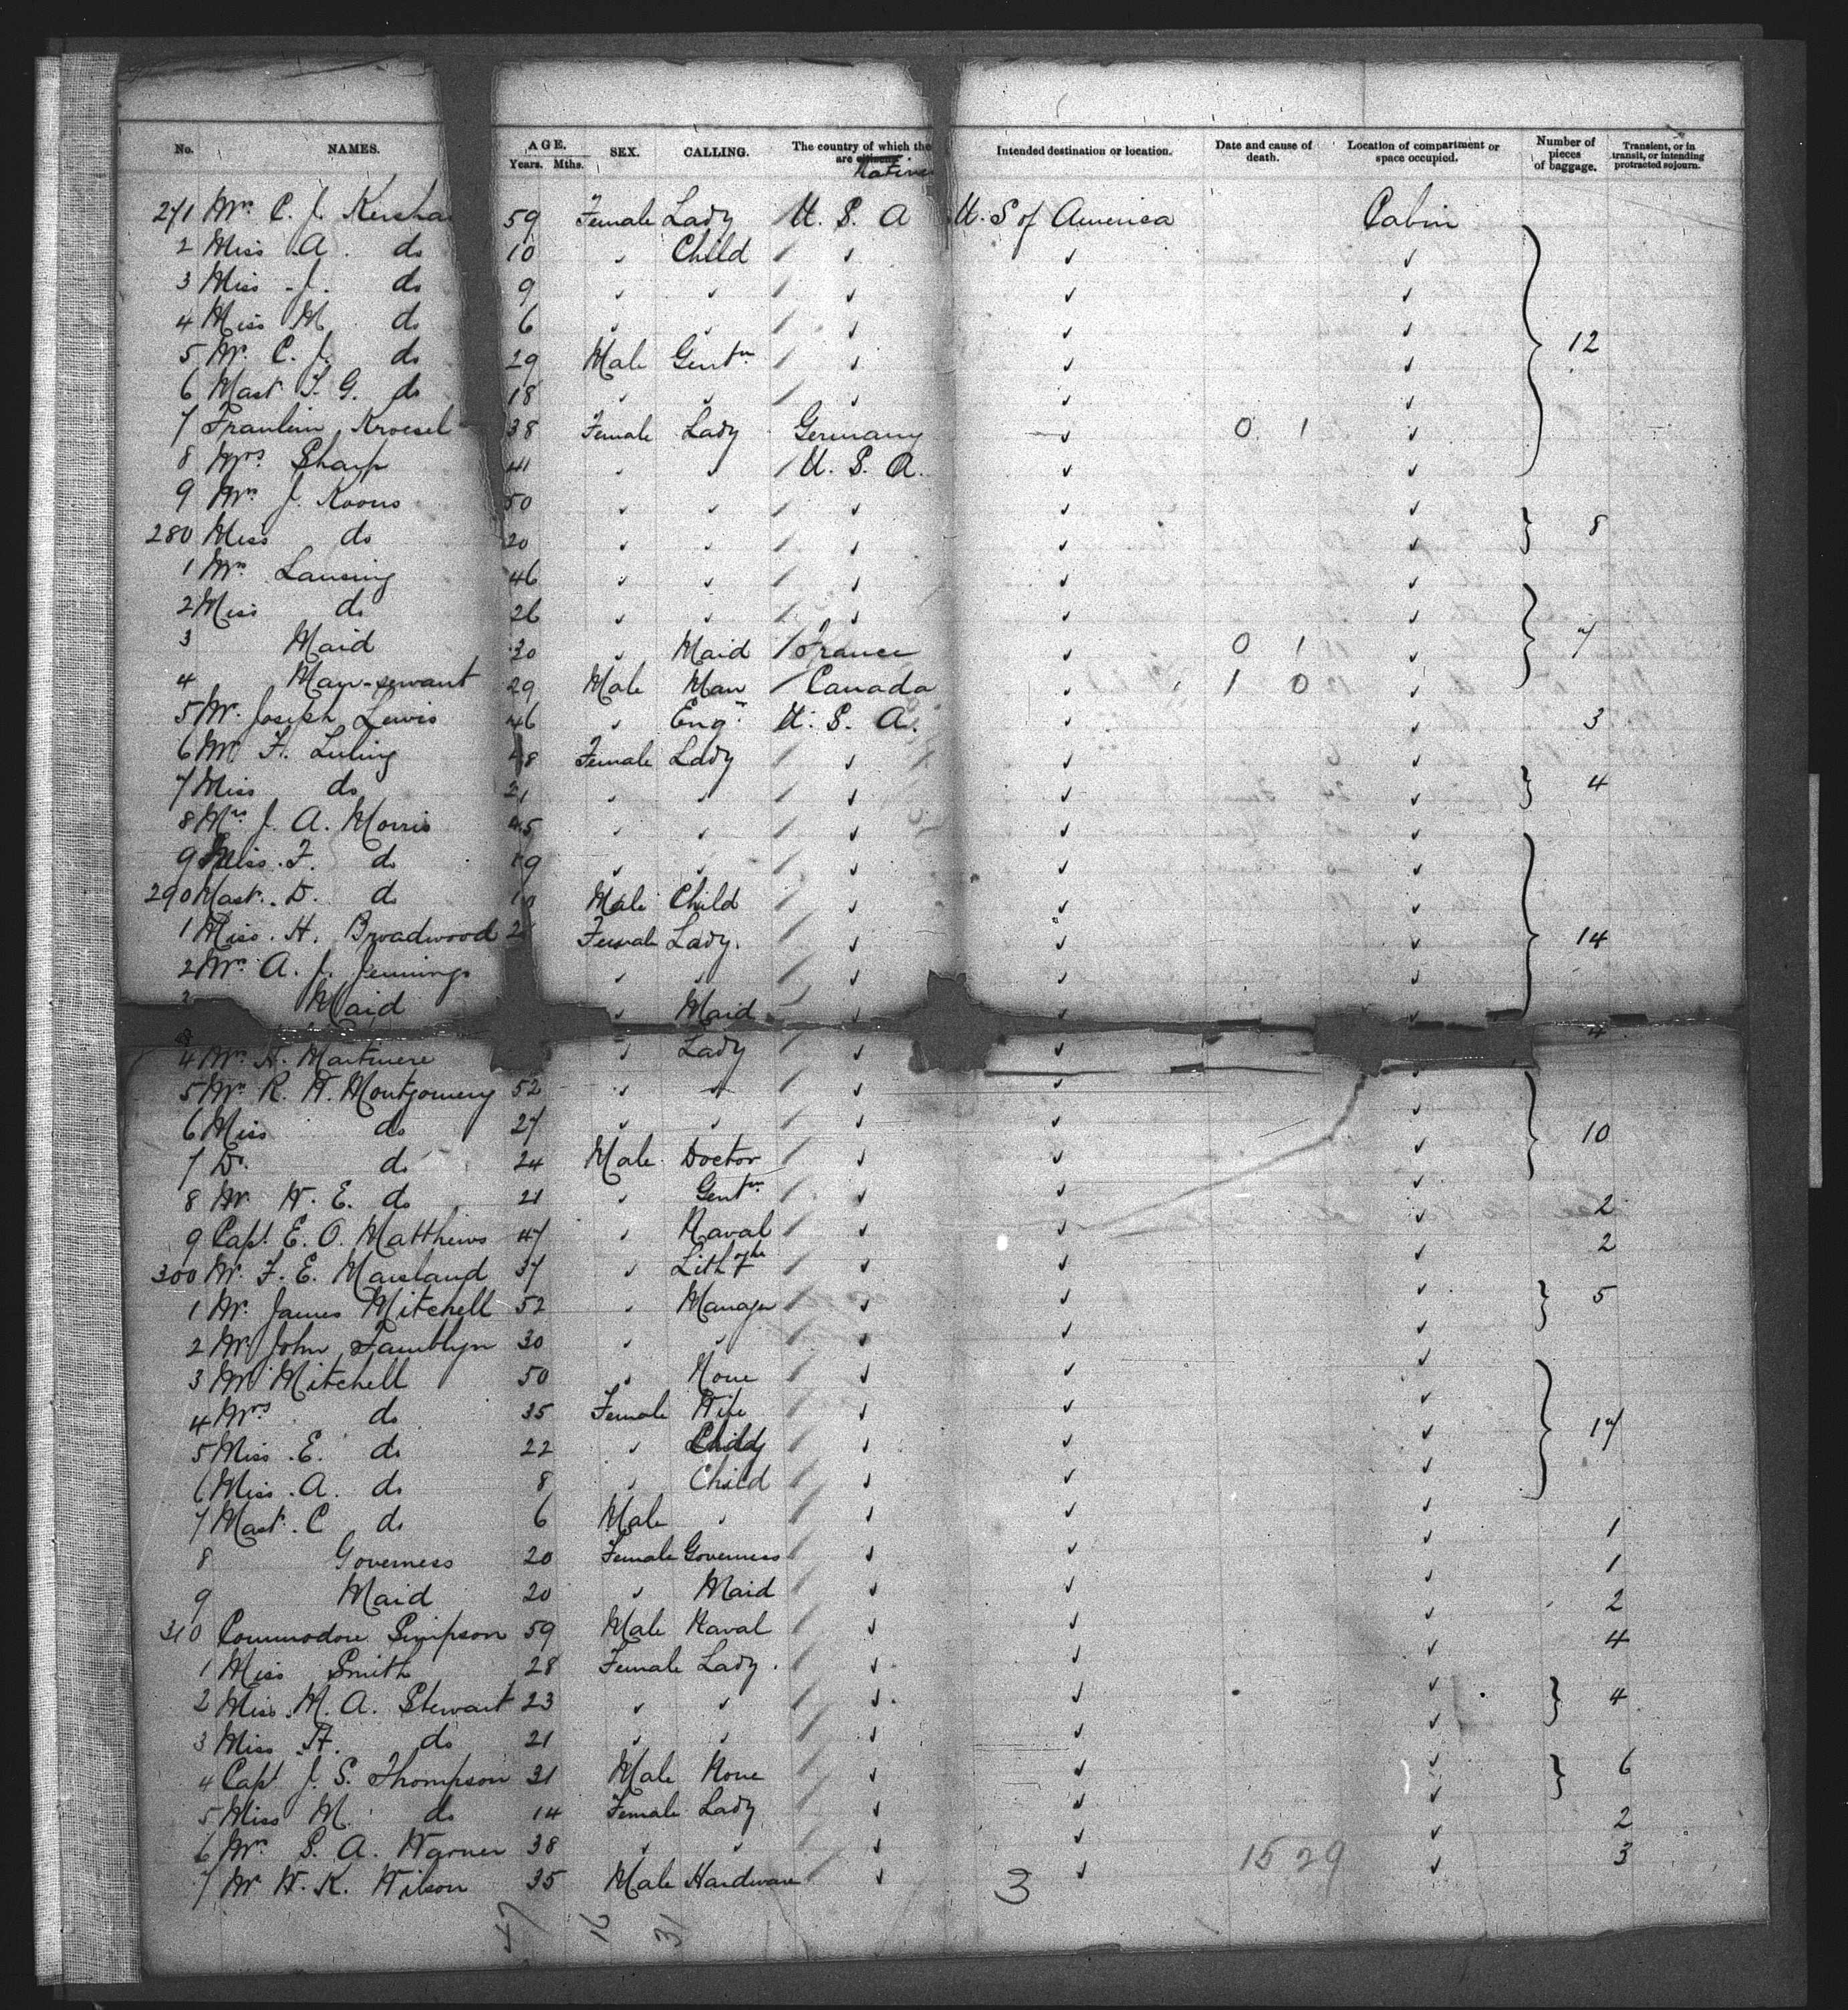 No. NAMES. AGE. Years. Mths. SEX. CALLING. The country of which the are citizens Natives Intended destination or location. Date and cause of death. Location of compartment or space occupied. Number of pieces of baggage. Transient, or in transit, or intending protracted sojourn.
271 Mrs. C. J. Kersha 59 Female Lady U. S. A U. S of America Cabin
2 Miss A. do 10 ✓ Child ✓ ✓ ✓
3 Miss J. do 9 ✓ ✓ ✓ ✓ ✓
4 Miss M. do 6 ✓ ✓ ✓ ✓ ✓
5 Mr. C. J. do 29 Male Gentn ✓ ✓ ✓ 12
6 Mast. T. G. do 18 ✓ ✓ ✓ ✓ ✓
7 Fraulein Kroesel 38 Female Lady Germany ✓ 0 1 ✓
8 Mrs Sharp 41 ✓ ✓ U. S. A. ✓ ✓
9 Mrs J. Koons 50 ✓ ✓ ✓ ✓ ✓
280 Miss do 20 ✓ ✓ ✓ ✓ ✓ 8
1 Mrs Lansing 46 ✓ ✓ ✓ ✓ ✓
2 Miss do 26 ✓ ✓ ✓ ✓ ✓
3 Maid 30 ✓ Maid France ✓ 0 1 ✓ 7
4 Man-servant 29 Male Man Canada ✓ 1 0 ✓
5 Mr. Joseph Lewis 46 ✓ Engr U. S. A. ✓ ✓ 3
6 Mrs F. Luling 48 Female Lady ✓ ✓ ✓
7 Miss do 21 ✓ ✓ ✓ ✓ ✓ 4
8 Mrs J. A. Morris 45 ✓ ✓ ✓ ✓ ✓
9 Miss. F. do 19 ✓ ✓ ✓ ✓ ✓
290 Mast. D. do Male Child ✓ ✓ ✓
1 Miss. H. Broadwood Female Lady. ✓ ✓ ✓ 14
2 Mrs A. J. Jennings ✓ ✓ ✓ ✓ ✓
3 Maid ✓ Maid ✓ ✓ ✓
4 Mrs H. Mortimere ✓ Lady ✓ ✓ 4
5 Mrs R. H. Montgomery 52 ✓ ✓ ✓ ✓ ✓
6 Miss do 27 ✓ ✓ ✓ ✓ ✓ 10
7 Dr. do 24 Male Doctor ✓ ✓ ✓
8 Mr. W. E. do 21 ✓ Gentn ✓ ✓ ✓ 2
9 Capt. E. O. Matthews 47 ✓ Naval ✓ ✓ ✓ 2
300 Mr. F. E. Marsland 37 ✓ ✓ ✓ ✓
1 Mr. James Mitchell 52 ✓ Manager ✓ ✓ ✓ 5
2 Mr. John Tamblyn 30 ✓ ✓ ✓ ✓ ✓
3 Mr Mitchell 50 ✓ None ✓ ✓ ✓
4 Mrs do 35 Female Wife ✓ ✓ ✓
5 Miss. E. do 22 ✓ ✓ ✓ ✓ 17
6 Miss. A. do 8 ✓ Child ✓ ✓ ✓
7 Mast. C do 6 Male ✓ ✓ ✓ ✓
8 Governess 20 Female Governess ✓ ✓ ✓ 1
9 Maid 20 ✓ Maid ✓ ✓ ✓ 1
310 Commodore Simpson 59 Male Naval ✓ ✓ ✓ 2
1 Miss Smith 28 Female Lady. ✓ ✓ ✓ 4
2 Miss. M. A. Stewart 23 ✓ ✓ ✓ ✓ ✓ 4
3 Miss H. do 21 ✓ ✓ ✓ ✓ ✓
4 Capt J. S. Thompson 31 Male None ✓ ✓ ✓ 6
5 Miss M. do 14 Female Lady ✓ ✓ ✓
6 Mrs S. A. Warner 38 ✓ ✓ ✓ ✓ ✓ 2
7 Mr W. K. Wilson 35 Male Hardware ✓ ✓ 15 29 ✓ 3
47 16 31 3